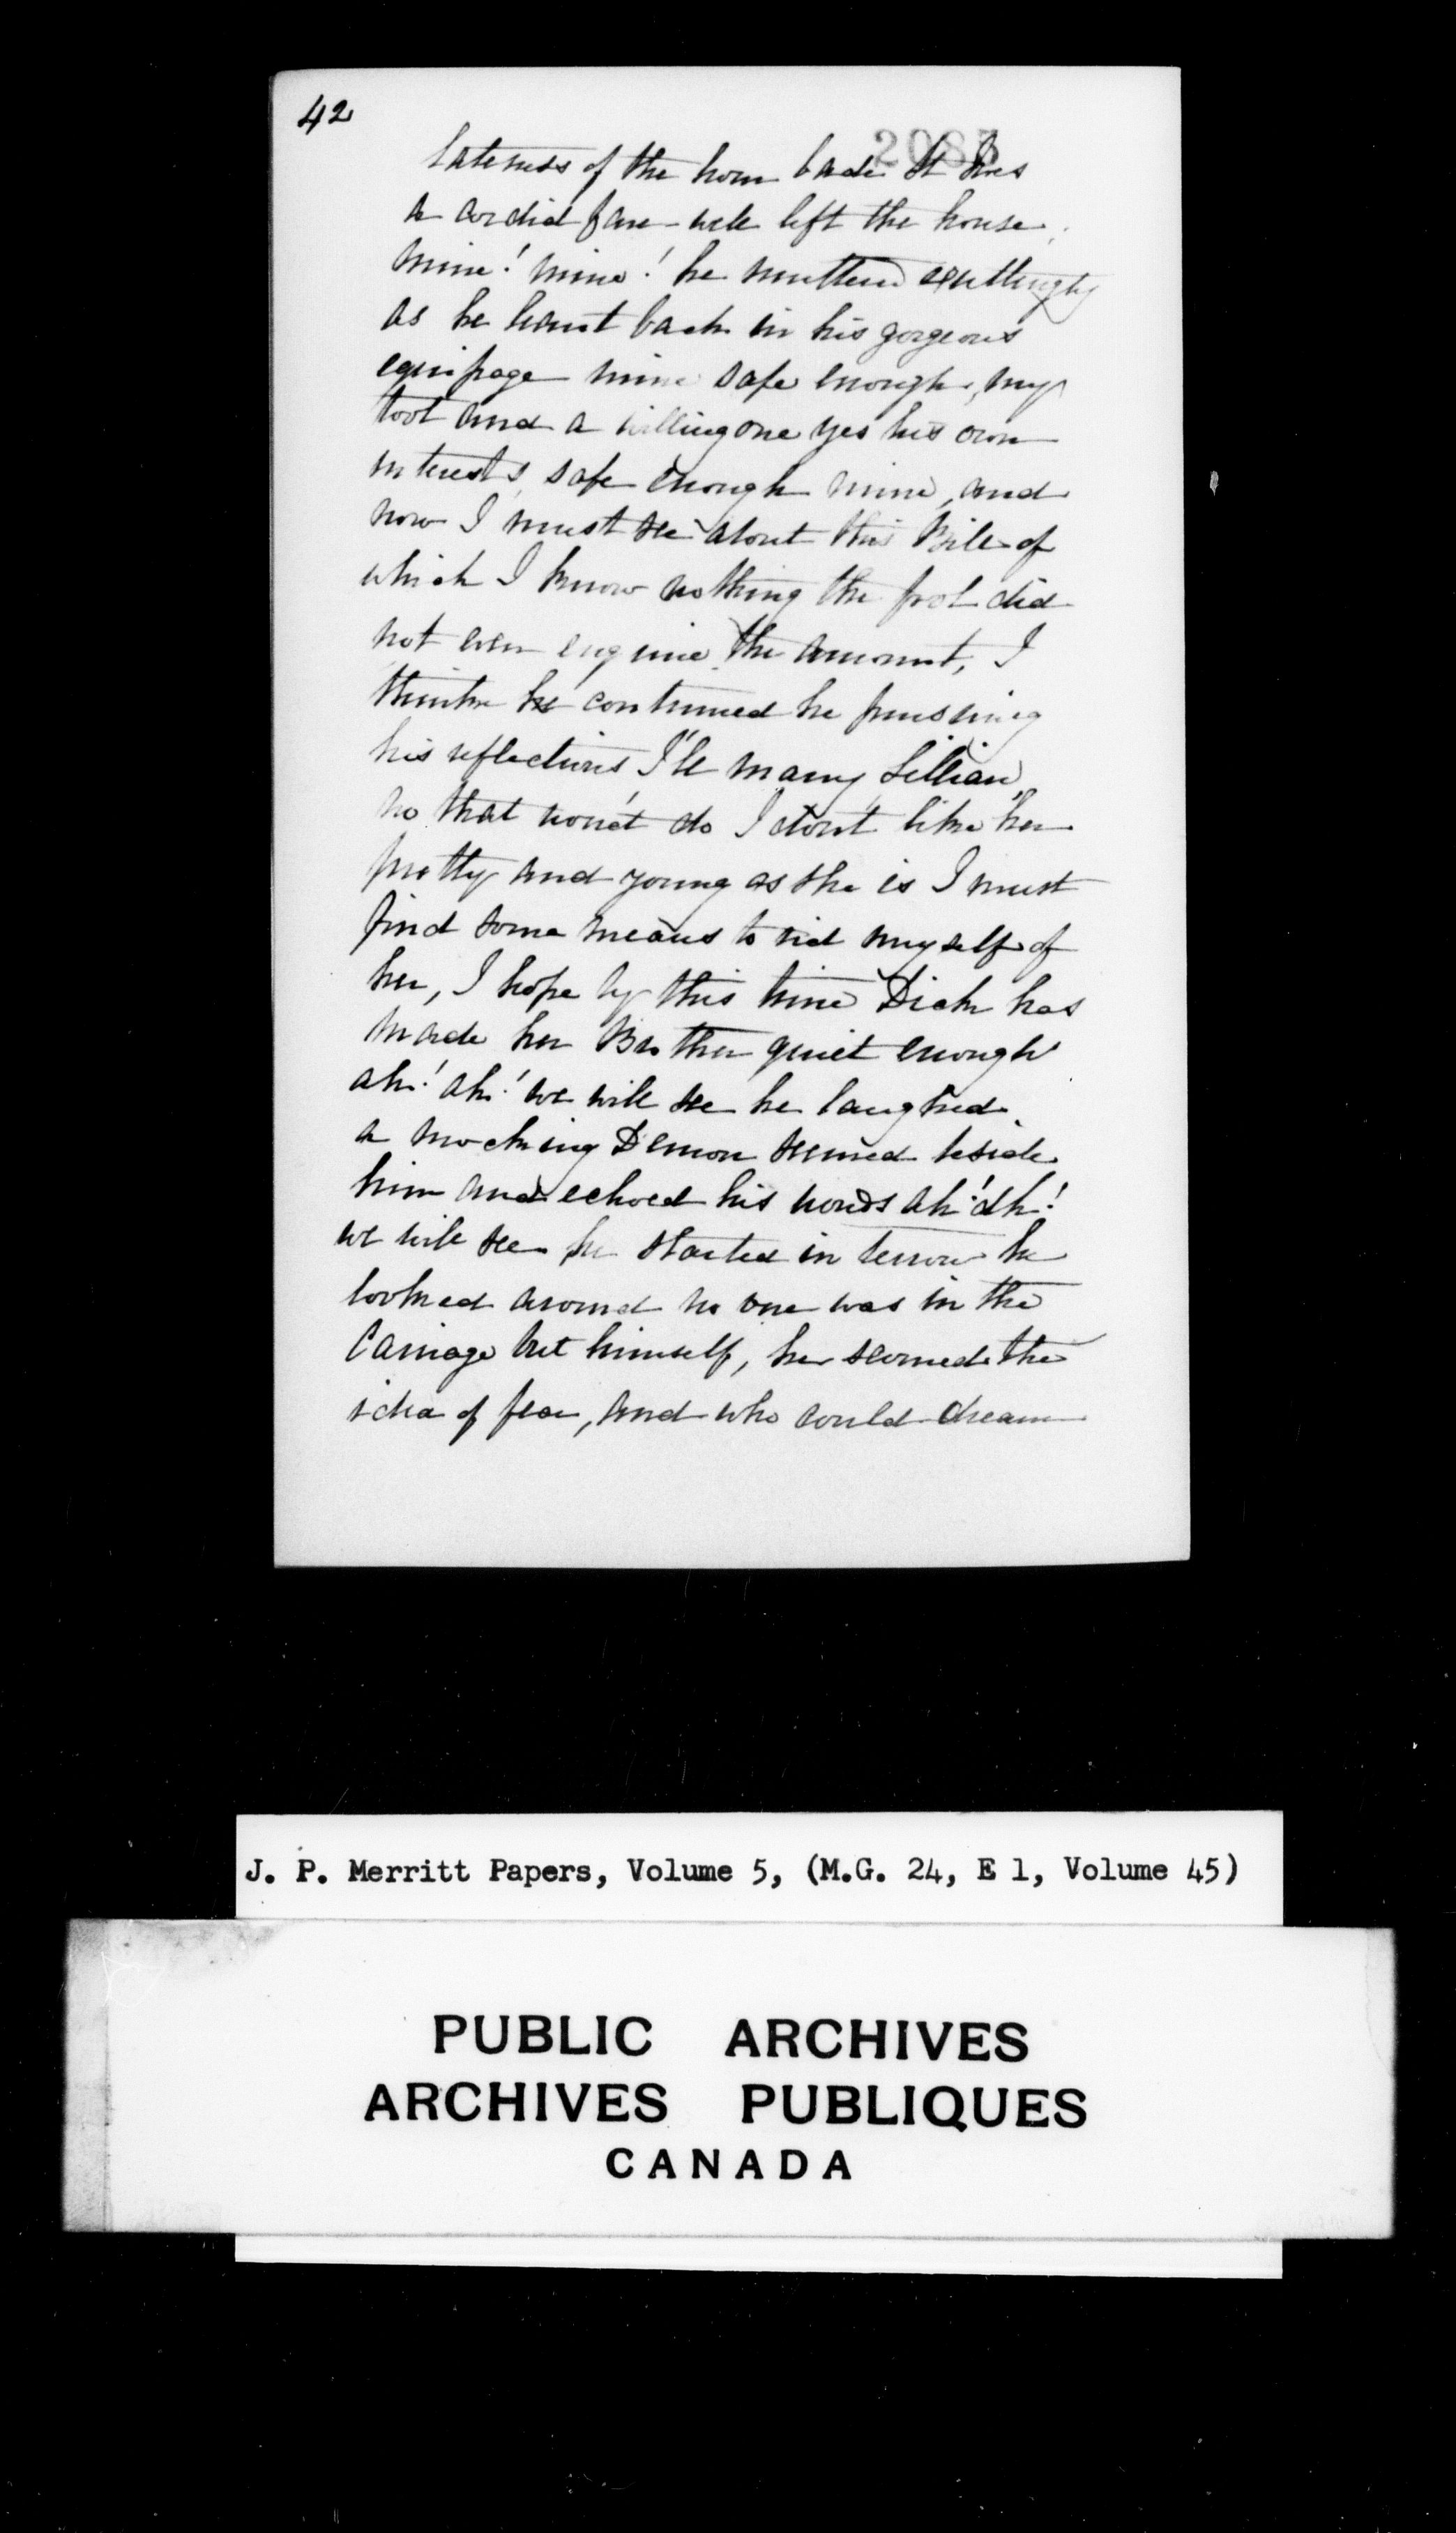 42
2085
lateness of the hour bade St Ives
a cordid fare-well left the house.
mine! mine! he muttered exultingly
as he leant back in his gorgeous
equipage mine safe enough, my
tool and a willing one yes his own
interests safe enough mine, and
now I must see about this Bill of
which I know nothing the fool did
not even enquire the amount, I
think he continued he pursuing
his reflections I'll marry Lillian,
no that won't do I don't like her
pretty and young as she is I must
find some means to rid myself of
her, I hope by this time Dick has
made her Brother quiet enough
ah! ah! we will see he laughed.
a mocking Demon seemed beside
him and echoed his words ah! ah!
we will see he started in terror he
looked around no one was in the
Carriage but himself, he scorned the
idea of fear, and who could dream
J. P. Merritt Papers, Volume 5, (M.G. 24, E 1, Volume 45)
PUBLIC ARCHIVES
ARCHIVES PUBLIQUES
CANADA